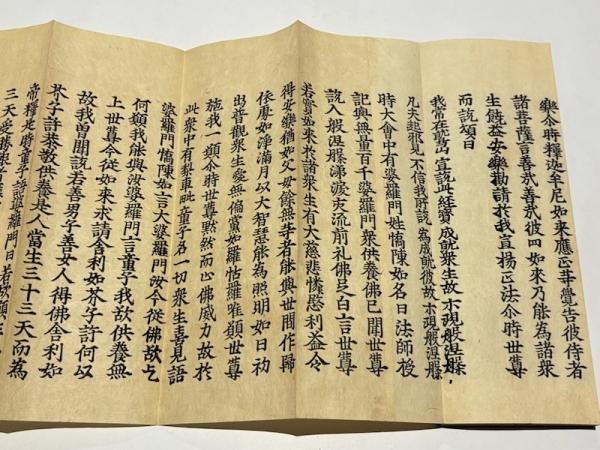 樂尒時釋迦牟尼如來應正等覺告彼侍者
諸菩薩言善哉善哉彼四如來乃能為諸衆
生饒益安樂勸請於我宣揚正法尒時世尊
而說頌曰
我常在鷲山 宣說此經寶 成就衆生故 示現般涅槃
凡夫起邪見 不信我所說 為成就彼故 示現般涅槃
時大會中有婆羅門姓憍陳如名曰法師授
記與無量百千婆羅門衆供養佛已聞世尊
說入般涅槃涕淚交流前礼佛足白言世尊
若實如來於諸衆生有大慈悲憐愍利益令
得安樂猶如父母餘無等者能與世間作歸
依處如淨滿月以大智慧能為照明如日初
出普觀衆生愛無偏黨如羅怙羅唯願世尊
施我一願尒時世尊默然而止佛威力故於
此衆中有梨車毗童子名一切衆生喜見語
婆羅門憍陳如言大婆羅門汝今從佛欲乞
何願我能與汝婆羅門言童子我欲供養無
上世尊今從如來求請舍利如芥子許何以
故我曾聞說若善男子善女人得佛舍利如
芥子許恭敬供養是人當生三十三天而為
帝釋是時童子語婆羅門曰若欲願生
三天受勝